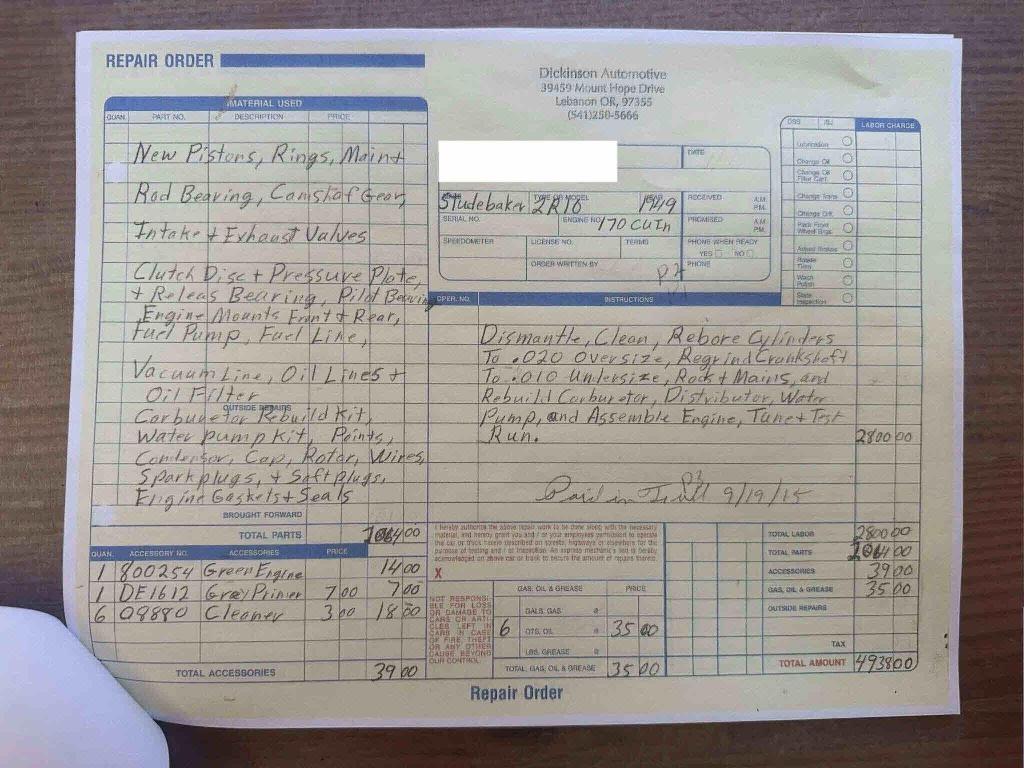 REPAIR ORDER
Dickinson Automotive
39459 Mount Hope Drive
Lebanon OR, 97355
(541)250-5666
MATERIAL USED
QUAN. PART NO. DESCRIPTION PRICE
New Pistons, Rings, Main +
Rod Bearing, Camshaf Gear,
Intake + Exhaust Valves
Clutch Disc + Pressure Plate,
+ Releas Bearing, Pilot Bearing
Engine Mounts Front + Rear,
Fuel Pump, Fuel Line,
Vacuum Line, Oil Lines +
Oil Filter
OUTSIDE REPAIRS
Carburetor Rebuild Kit,
Water pump kit, Points,
Condensor, Cap, Rotor, Wires,
Sparkplugs, + Soft plugs,
Engine Gaskets + Seals
BROUGHT FORWARD
TOTAL PARTS
QUAN. ACCESSORY NO. ACCESSORIES PRICE
1 800254 Green Engine 14 00
1 DE1612 Gray Primer 7 00 7 00
6 09880 Cleaner 3 00 18 00
TOTAL ACCESSORIES 39 00
DATE
MAKE TYPE OR MODEL YEAR
Studebaker 2R10 1949
RECEIVED A.M. P.M.
SERIAL NO. ENGINE NO. 170 CU In
PROMISED A.M. P.M.
SPEEDOMETER LICENSE NO. TERMS
PHONE WHEN READY
YES NO
ORDER WRITTEN BY PHONE
LABOR CHARGE
Lubrication
Change Oil
Change Oil
Filter Cart.
Change Trans.
Change Diff.
Pack Front
Wheel Brgs.
Adjust Brakes
Rotate
Tires
Wash
Polish
State
Inspection
OPER. NO. INSTRUCTIONS
Dismantle, Clean, Rebore Cylinders
To .020 Oversize, Regrind Crankshaft
To .010 Undersize, Rods + Mains, and
Rebuild Carburetor, Distributor, Water
Pump, and Assemble Engine, Tune + Test
Run. 2800 00
Paid in Full 9/19/15
I hereby authorize the above repair work to be done along with the necessary
material, and hereby grant you and / or your employees permission to operate
the car or truck herein described on streets, highways or elsewhere for the
purpose of testing and / or inspection. An express mechanic's lien is hereby
acknowledged on above car or truck to secure the amount of repairs thereto.
X
NOT RESPONSI-
BLE FOR LOSS
OR DAMAGE TO
CARS OR ARTI-
CLES LEFT IN
CARS IN CASE
OF FIRE, THEFT
OR ANY OTHER
CAUSE BEYOND
OUR CONTROL.
GAS, OIL & GREASE PRICE
GALS. GAS @
6 QTS. OIL @ 35 00
LBS. GREASE @
TOTAL GAS, OIL & GREASE 35 00
TOTAL LABOR 2800 00
TOTAL PARTS
ACCESSORIES 39 00
GAS, OIL & GREASE 35 00
OUTSIDE REPAIRS
TAX
TOTAL AMOUNT 4938 00
Repair Order